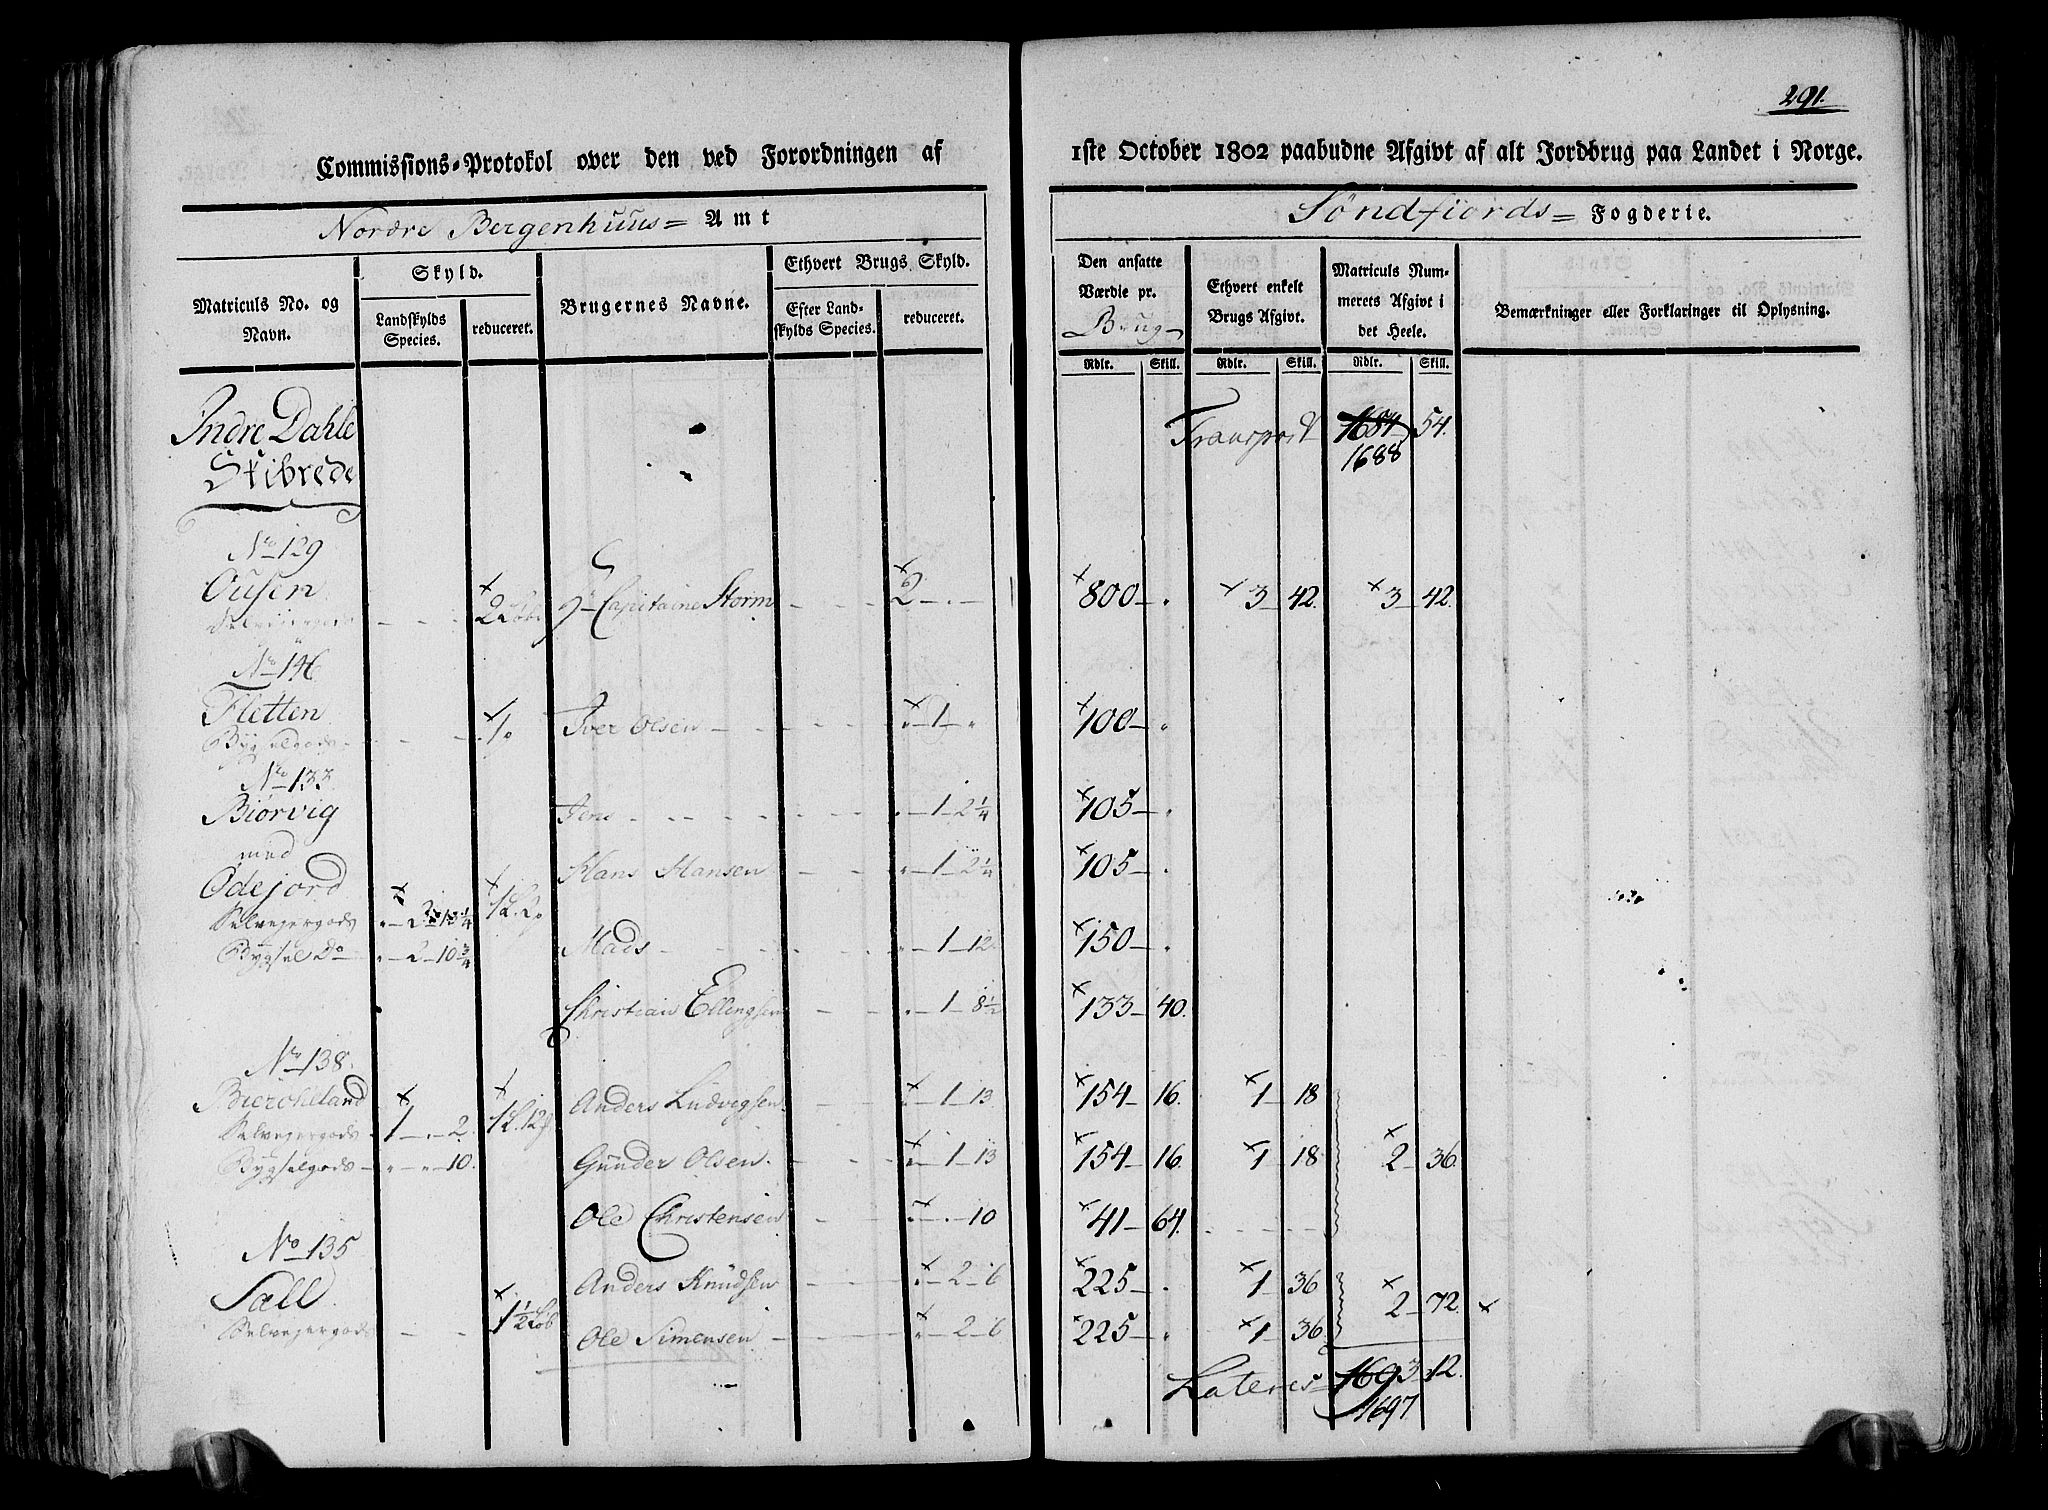 291.
Commissions-Protokol over den ved Forordningen af
1ste October 1802 paabudne Afgivt af alt Jordbrug paa Landet i Norge.
Nordre Bergenhuus= Amt
Söndfiords= Fogderie.
Matriculs No. og Navn.
Skyld.
Landskylds Species.
reduceret.
Brugernes Navne.
Ethvert Brugs Skyld.
Efter Landskylds Species.
reduceret.
Den ansatte Værdie pr. Brug
Ethvert enkelt Brugs Afgivt.
Matriculs Nummerets Afgivt i det Heele.
Bemærkninger eller Forklaringer til Oplysning.
Rdlr. Skill. Rdlr. Skill. Rdlr. Skill.
Indre Dahle
Skibrede
Transport 1684 54.
1688
No 129
Ousen
2 Løb. Hr Capitaine Storm 2 800 3 42. 3 42.
No 146
Fletten
Bygselgods 1 Iver Olsen 1 100
No 133
Biörvig
Jens 1 2 1/4 105
med
Ödejord
Hans Hansen 1 2 1/4 105
Selvejergods
Bygsel Do 2 10 3/4 Mads 1 12 150
Christian Ellengsen 1 8 1/2 133 40.
No 138.
Selvejergods 1 2. Anders Ludvigsen 1 13 154 16. 1 18
Bygselgods 10. Gunder Olsen 1 13 154 16. 1 18 2 36.
Ole Christensen 10 41 64.
No 135
Anders Knudsen 2 6 225 1 36
Selvejergods 1 1/2 Løb 2 72.
Ole Simensen 2 6 225 1 36
Lateres 1693 12.
1697